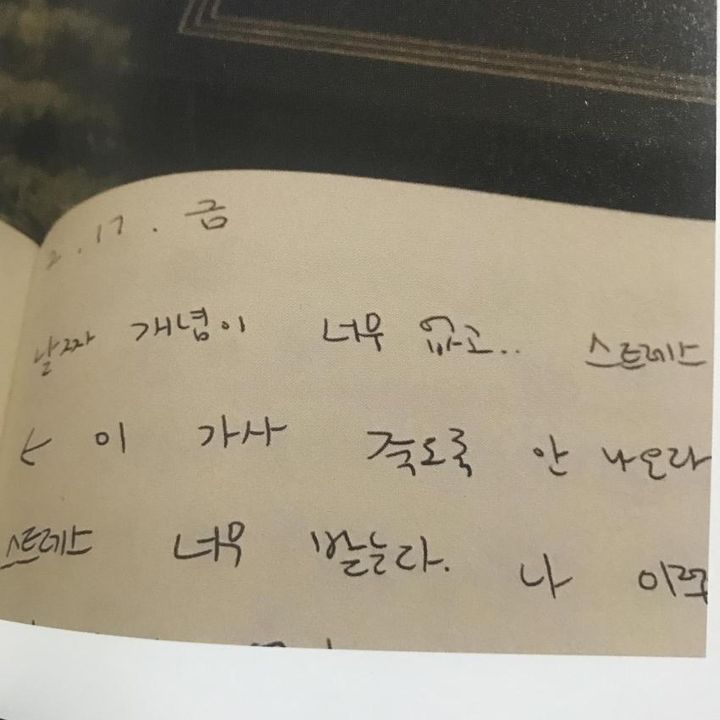 2.17.금
날짜 개념이 너무 없고.. 스트레스
이 가사 죽도록 안 나오라
스트레스 너무 받는다. 나